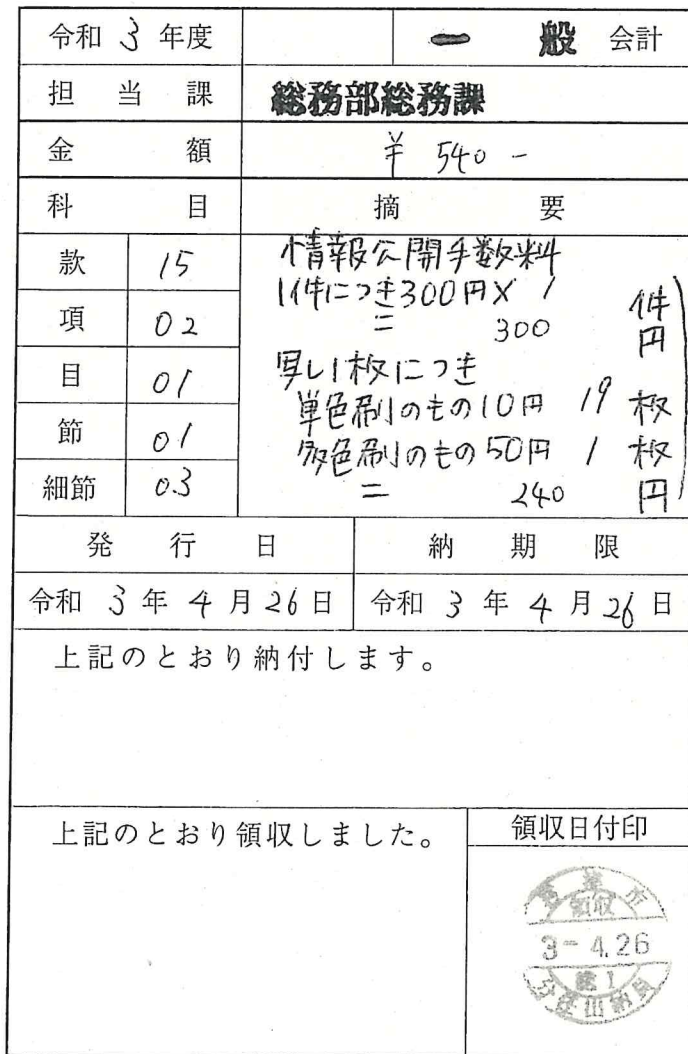 令和 3 年度 一 般 会計
担当課 総務部総務課
金額 ¥ 540 -
科目 摘要
款 15 情報公開手数料
1件につき300円× 1 件
項 02 = 300 円
目 01 写し1枚につき
節 01 単色刷のもの10円 19 枚
多色刷のもの50円 1 枚
細節 03 = 240 円
発行日 納期限
令和 3 年 4 月 26 日 令和 3 年 4 月 26 日
上記のとおり納付します。
上記のとおり領収しました。 領収日付印
市
領収
3-4.26
総1
分任出納員